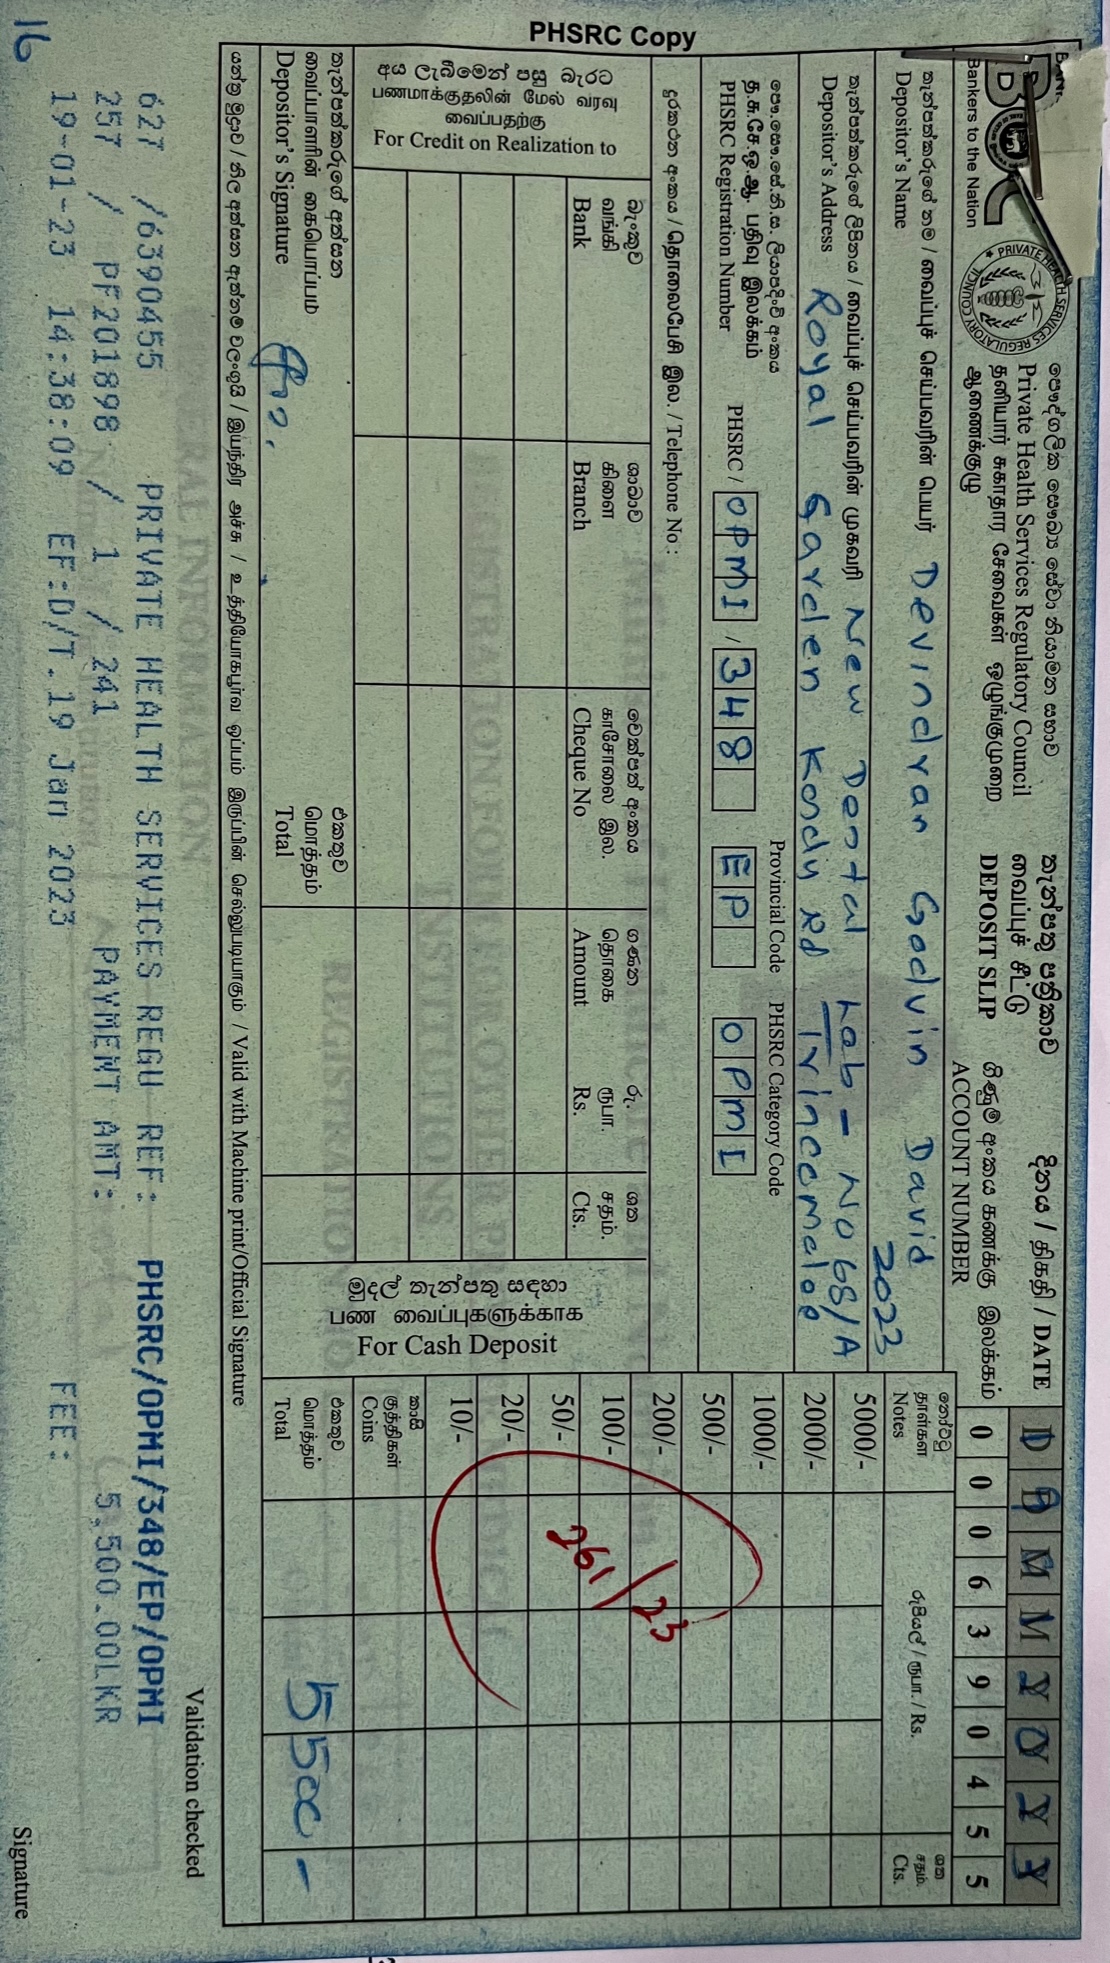 PHSRC Copy
Bankers to the Nation
PRIVATE HEALTH SERVICES REGULATORY COUNCIL
පෞද්ගලික සෞඛ්‍ය සේවා නියාමන සභාව
Private Health Services Regulatory Council
தனியார் சுகாதார சேவைகள் ஒழுங்குமுறை
ஆணைக்குழு
තැන්පතු පත්‍රිකාව
வைப்புச் சீட்டு
DEPOSIT SLIP
දිනය / திகதி / DATE
D D M M Y Y Y Y
ගිණුම් අංකය கணக்கு இலக்கம்
ACCOUNT NUMBER
0 0 0 6 3 9 0 4 5 5
තැන්පත්කරුගේ නම / வைப்புச் செய்பவரின் பெயர்
Depositor's Name
Devindran Godvin David
2023
තැන්පත්කරුගේ ලිපිනය / வைப்புச் செய்பவரின் முகவரி
Depositor's Address
New Dental Lab - No 68/A
Royal Garden Kandy Rd Trincomalee
පෞ.සෞ.සේ.නි.ස. ලියාපදිංචි අංකය
த.சு.சே.ஒ.ஆ. பதிவு இலக்கம்
PHSRC Registration Number
PHSRC / OPMI / 348
Provincial Code
EP
PHSRC Category Code
OPMI
දුරකථන අංකය / தொலைபேசி இல. / Telephone No.:
අය ලැබීමෙන් පසු බැරට
பணமாக்குதலின் மேல் வரவு
வைப்பதற்கு
For Credit on Realization to
බැංකුව
வங்கி
Bank
ශාඛාව
கிளை
Branch
චෙක්පත් අංකය
காசோலை இல.
Cheque No
ගණන
தொகை
Amount
රු.
ரூபா.
Rs.
ශත
சதம்.
Cts.
මුදල් තැන්පතු සඳහා
பண வைப்புகளுக்காக
For Cash Deposit
නෝට්ටු
தாள்கள்
Notes
රුපියල් / ரூபா. / Rs.
ශත
சதம்.
Cts.
5000/-
2000/-
1000/-
500/-
200/-
100/-
50/-
20/-
10/-
261/23
කාසි
குத்திகள்
Coins
එකතුව
மொத்தம்
Total
5500 -
තැන්පත්කරුගේ අත්සන
வைப்பாளரின் கையொப்பம்
Depositor's Signature
එකතුව
மொத்தம்
Total
යන්ත්‍ර මුද්‍රාව / නිල අත්සන ඇත්නම් වලංගුයි / இயந்திர அச்சு / உத்தியோகபூர்வ ஒப்பம் இருப்பின் செல்லுபடியாகும் / Valid with Machine print/Official Signature
Validation checked
627 /6390455 PRIVATE HEALTH SERVICES REGU REF: PHSRC/OPMI/348/EP/OPMI
257 / PF201898 / 1 / 241 PAYMENT AMT: 5,500.00LKR
19-01-23 14:38:09 EF:D/T.19 Jan 2023 FEE:
16
Signature